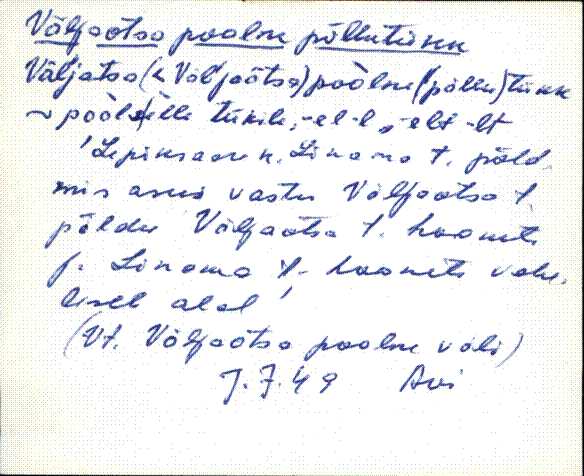 Väljaotsa poolne põllutükk
Väljatsa (< Väljaõtsa) poolne (põllu) tükk
~ poolsele tükile, -el -l, -elt -lt
'Lepiksaare k. Linama t. põld
mis asus vastu Väljaotsa t.
põldu Väljaotsa t. hoonete
j. Linama t. hoonete vahe-
lisel alal'
(Vt. Väljaotsa poolne väli)
J. J. 49 Avi